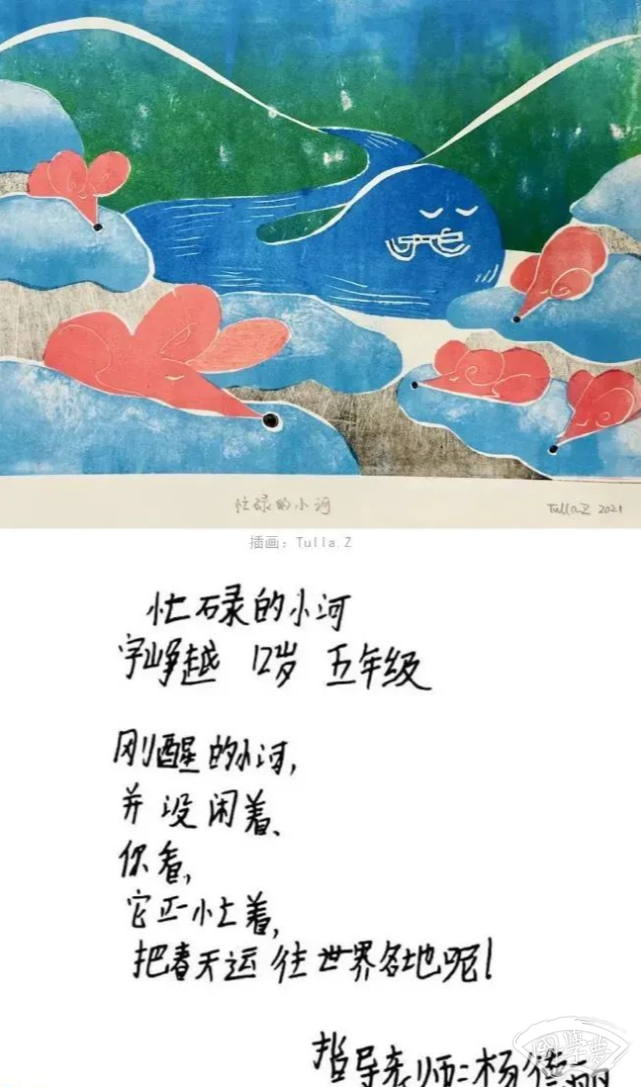 忙碌的小河
Tulla.Z 2021
插画：Tulla.Z
忙碌的小河
宇峥越 12岁 五年级
刚醒的小河,
并没闲着、
你看,
它正忙着,
把春天运往世界各地呢!
指导老师:杨俊丽